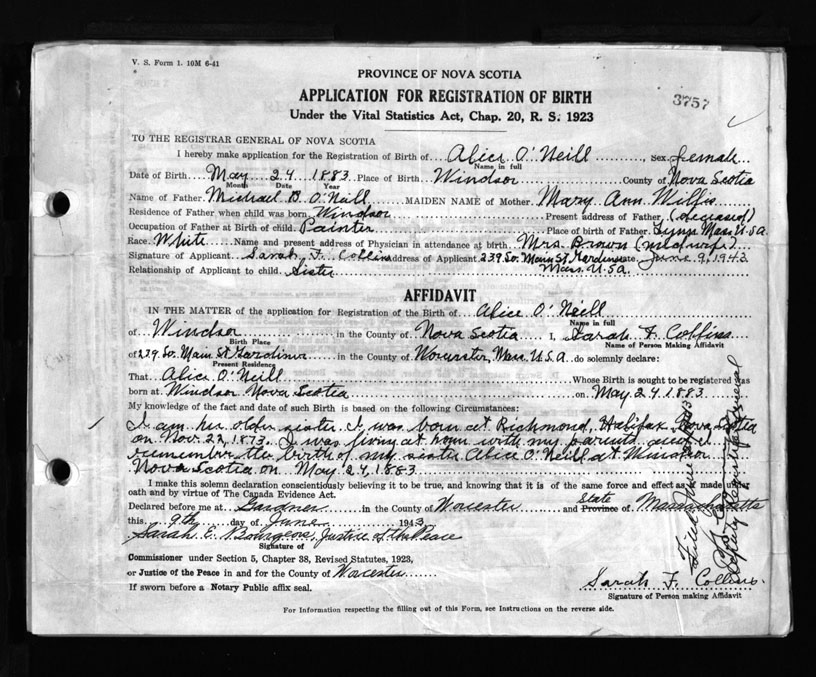 V. S. Form 1. 10M 6-41
PROVINCE OF NOVA SCOTIA
3757
APPLICATION FOR REGISTRATION OF BIRTH
Under the Vital Statistics Act, Chap. 20, R. S. 1923
TO THE REGISTRAR GENERAL OF NOVA SCOTIA
I hereby make application for the Registration of Birth of Alice O'Neill, Sex female
Name in full
Date of Birth May 24 1883 Place of Birth Windsor County of Nova Scotia
Month Date Year
Name of Father Michael B O'Neill MAIDEN NAME of Mother Mary Ann
Residence of Father when child was born Windsor Present address of Father (deceased)
Occupation of Father at Birth of child Painter Place of birth of Father Lynn Mass. U.S.A.
Race White Name and present address of Physician in attendance at birth Mrs. Brown (midwife)
Signature of Applicant Sarah F. Collins address of Applicant 239 So. Main St. June 9, 1943
Relationship of Applicant to child Sister Mass. U.S.A.
AFFIDAVIT
IN THE MATTER of the application for Registration of the Birth of Alice O'Neill
Name in full
of Windsor in the County of Nova Scotia I, Sarah F. Collins
Birth Place Name of Person Making Affidavit
of 239 So. Main St. Gardner in the County of Worcester, Mass. U.S.A. do solemnly declare:
Present Residence
That Alice O'Neill Whose Birth is sought to be registered was
born at Windsor Nova Scotia on May 24 1883
My knowledge of the fact and date of such Birth is based on the following Circumstances:
I am her older sister. I was born at Richmond, Halifax, Nova Scotia
on Nov. 22, 1873. I was living at home with my parents and I
remember the birth of my sister Alice O'Neill at Windsor
Nova Scotia on May 24, 1883.
I make this solemn declaration conscientiously believing it to be true, and knowing that it is of the same force and effect as if made under
oath and by virtue of The Canada Evidence Act.
Declared before me at Gardner in the County of Worcester and Province State of Massachusetts
this 9th day of June 1943
Sarah E. Bourgeois, Justice of the Peace
Signature of
Commissioner under Section 5, Chapter 38, Revised Statutes, 1923,
or Justice of the Peace in and for the County of Worcester
If sworn before a Notary Public affix seal.
Sarah F. Collins.
Signature of Person making Affidavit
For Information respecting the filling out of this Form, see Instructions on the reverse side.
Filed June
Deputy Registrar General